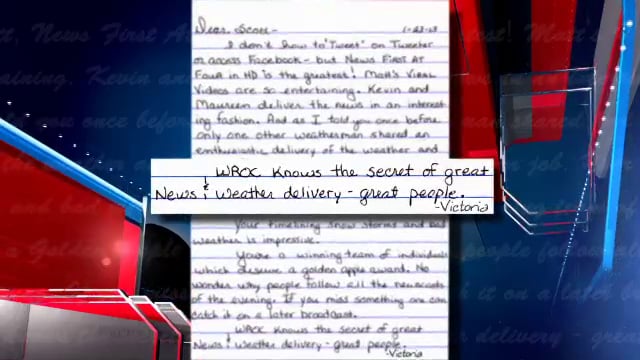 Dear Scott- 1-23-13
I don't know to "Tweet" on Tweeter
or access Facebook - but News First At
Four in HD is the greatest! Matt's Viral
Videos are so entertaining. Kevin and
Maureen deliver the news in an interest-
ing fashion. And as I told you once before
only one other weatherman shared an
enthusiastic delivery of the weather and
WROC knows the secret of great
News & weather delivery - great people.
-Victoria
Your timelining snow storms and bad
weather is impressive.
You're a winning team of individuals
which deserve a golden apple award. No
wonder why people follow all the newscasts
of the evening. If you miss something one can
catch it on a later broadcast.
WROC knows the secret of great
News & weather delivery - great people.
-Victoria